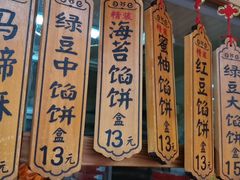 马蹄酥
绿豆中馅饼
盒13元
精装
海苔馅饼
盒13元
精装
蜜柚馅饼
盒13元
红豆馅饼
盒13元
绿豆大馅饼
盒15